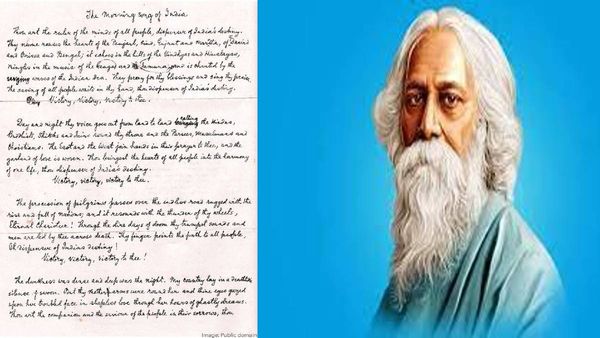 The Morning song of India
Thou art the ruler of the minds of all people, dispenser of India's destiny.
Thy name rouses the hearts of the Punjab, Sind, Gujrat and Maratha, of Dravid
and Orissa and Bengal; it echoes in the hills of the Vindhyas and Himalayas,
mingles in the music of the Ganges and the Jamuna, and is chanted by the
waves of the Indian Sea. They pray for thy blessings and sing thy praise,
The saving of all people waits in thy hand, thou dispenser of India's destiny.
Victory, Victory, Victory to thee.
Day and night thy voice goes out from land to land calling the Hindus,
Buddhists, Sikhs and Jains round thy throne and the Parsees, Mussalmans and
Christians. The East and the West join hands in their prayer to thee, and the
garland of love is woven. Thou bringest the hearts of all people into the harmony
of one life, thou dispenser of India's destiny.
Victory, victory, victory to thee.
The procession of pilgrims passes over the endless road rugged with the
rise and fall of nations; and it resounds with the thunder of thy wheels,
Eternal Charioteer! Through the dire days of doom thy trumpet sounds and
men are led by thee across death. Thy finger points the path to all people,
Oh dispenser of India's destiny!
Victory, victory, victory to thee!
The darkness was dense and deep was the night. My country lay in a deathlike
silence of swoon. But thy mother arms were round her and thine eyes gazed
upon her troubled face in sleepless love through her hours of ghastly dreams.
Thou art the companion and the saviour of the people in their sorrows, thou
Image: Public domain